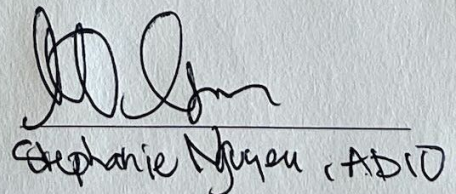 Stephanie Nguyen, ADIO